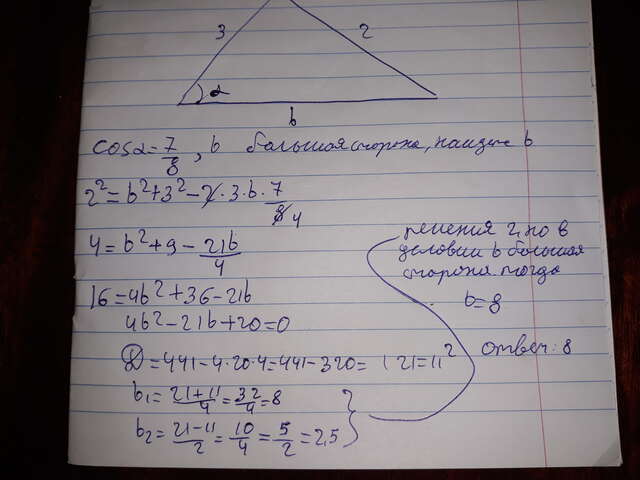 3
2
α
b
cosα = 7/8, b большая сторона, найдите b
2² = b² + 3² − 2 · 3 · b · 7/8 4
4 = b² + 9 − 21b/4
16 = 4b² + 36 − 21b
4b² − 21b + 20 = 0
D = 441 − 4 · 20 · 4 = 441 − 320 = 121 = 11²
b₁ = 21+11/4 = 32/4 = 8
b₂ = 21−11/2 = 10/4 = 5/2 = 2,5
решения 2, но в
условии b большая
сторона тогда
b = 8
ответ: 8